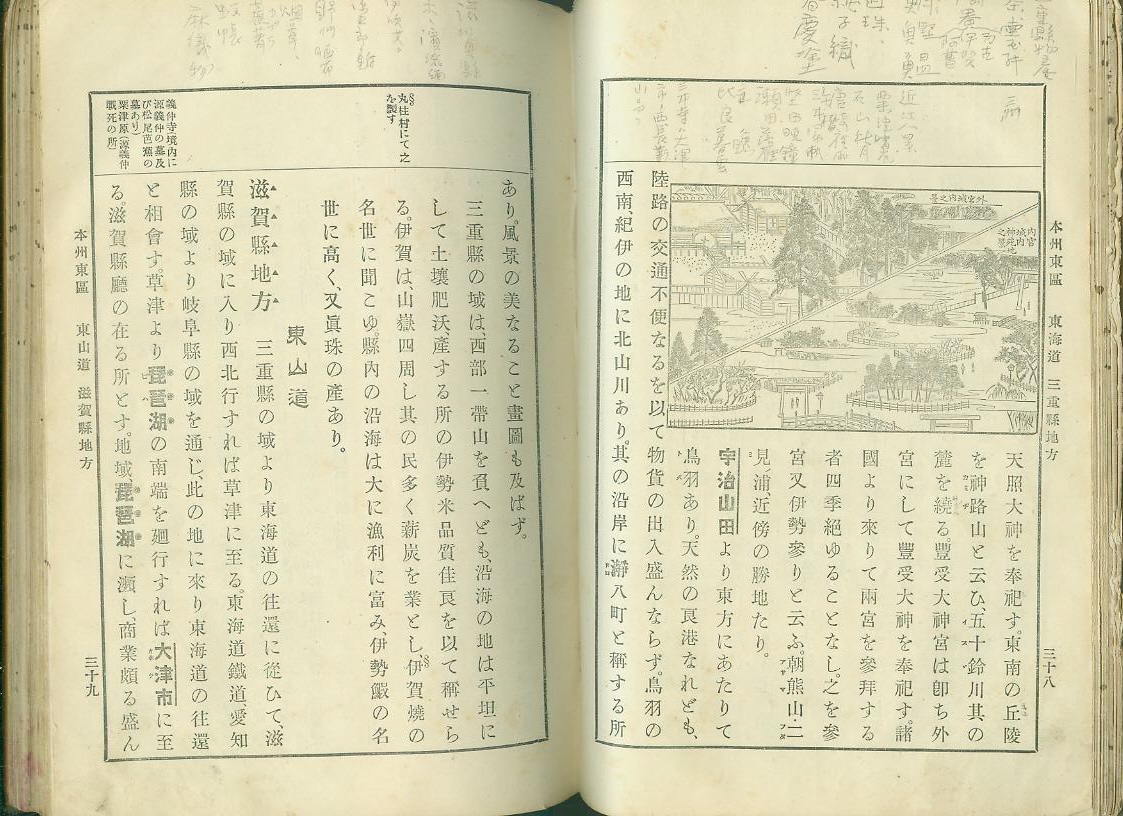 本州東區　東海道　三重縣地方
三十八
外宮域内之景
内宮域内神苑地之景
天照大神を奉祀す。東南の丘陵
を神路山と云ひ、五十鈴川其の
麓を繞る。豐受大神宮は卽ち外
宮にして豐受大神を奉祀す。諸
國より來りて兩宮を參拜する
者四季絶ゆることなし。之を參
宮又伊勢參りと云ふ。朝熊山・二
見ノ浦、近傍の勝地たり。
宇治山田より東方にあたりて
鳥羽あり。天然の良港なれども、
陸路の交通不便なるを以て物貨の出入盛んならず。鳥羽の
西南、紀伊の地に北山川あり。其の沿岸に瀞八町と稱する所
丸柱村にて之を製す
義仲寺(境内に
源義仲の墓及
び松尾芭蕉の
墓あり)
粟津原(源義仲
戰死の所)
あり。風景の美なること畫圖も及ばず。
三重縣の域は、西部一帶山を負へども、沿海の地は平坦に
して土壤肥沃、產する所の伊勢米品質佳良を以て稱せら
る。伊賀は、山嶽四周し其の民多く薪炭を業とし、伊賀燒の
名世に聞こゆ。縣内の沿海は大に漁利に富み、伊勢鰕の名
世に高く、又眞珠の產あり。
東山道
滋賀縣地方　三重縣の域より東海道の往還に從ひて、滋
賀縣の域に入り西北行すれば草津に至る。東海道鐵道、愛知
縣の域より岐阜縣の域を通じ、此の地に來り東海道の往還
と相會す。草津より琵琶湖の南端を廻行すれば大津市に至
る。滋賀縣廳の在る所とす。地域、琵琶湖に瀕し、商業頗る盛ん
本州東區　東山道　滋賀縣地方
三十九